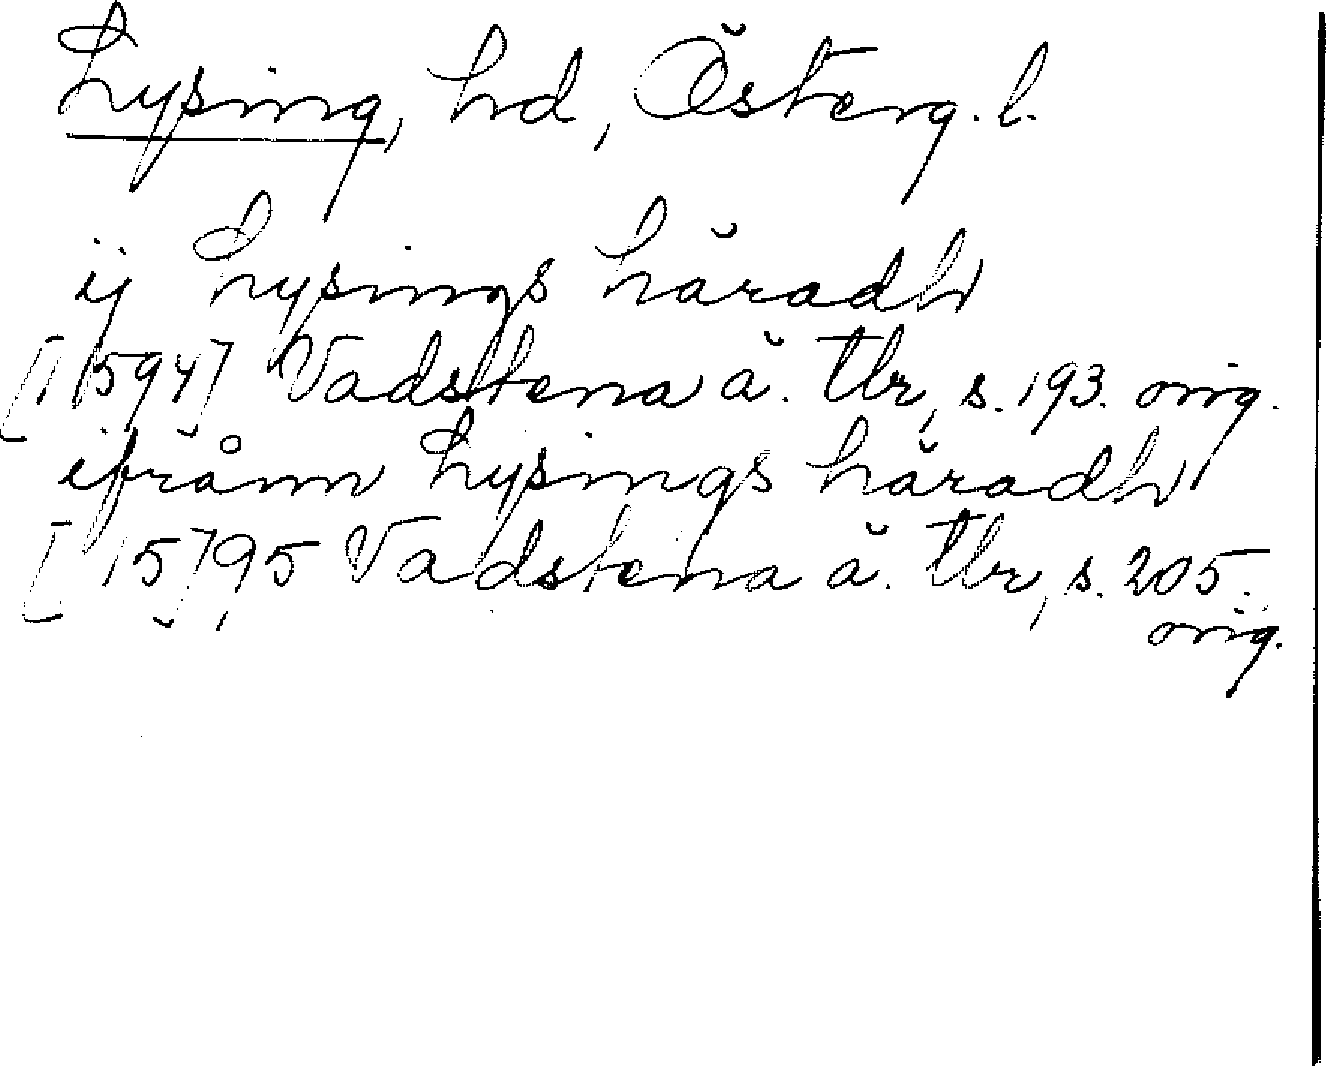 Lysing, hd, Österg. l.
ij Lysings häradh
[1594] Vadstena ä. tbr, s. 193. orig.
ifrånn Lysings häradh
[15]95 Vadstena ä. tbr, s. 205.
orig.